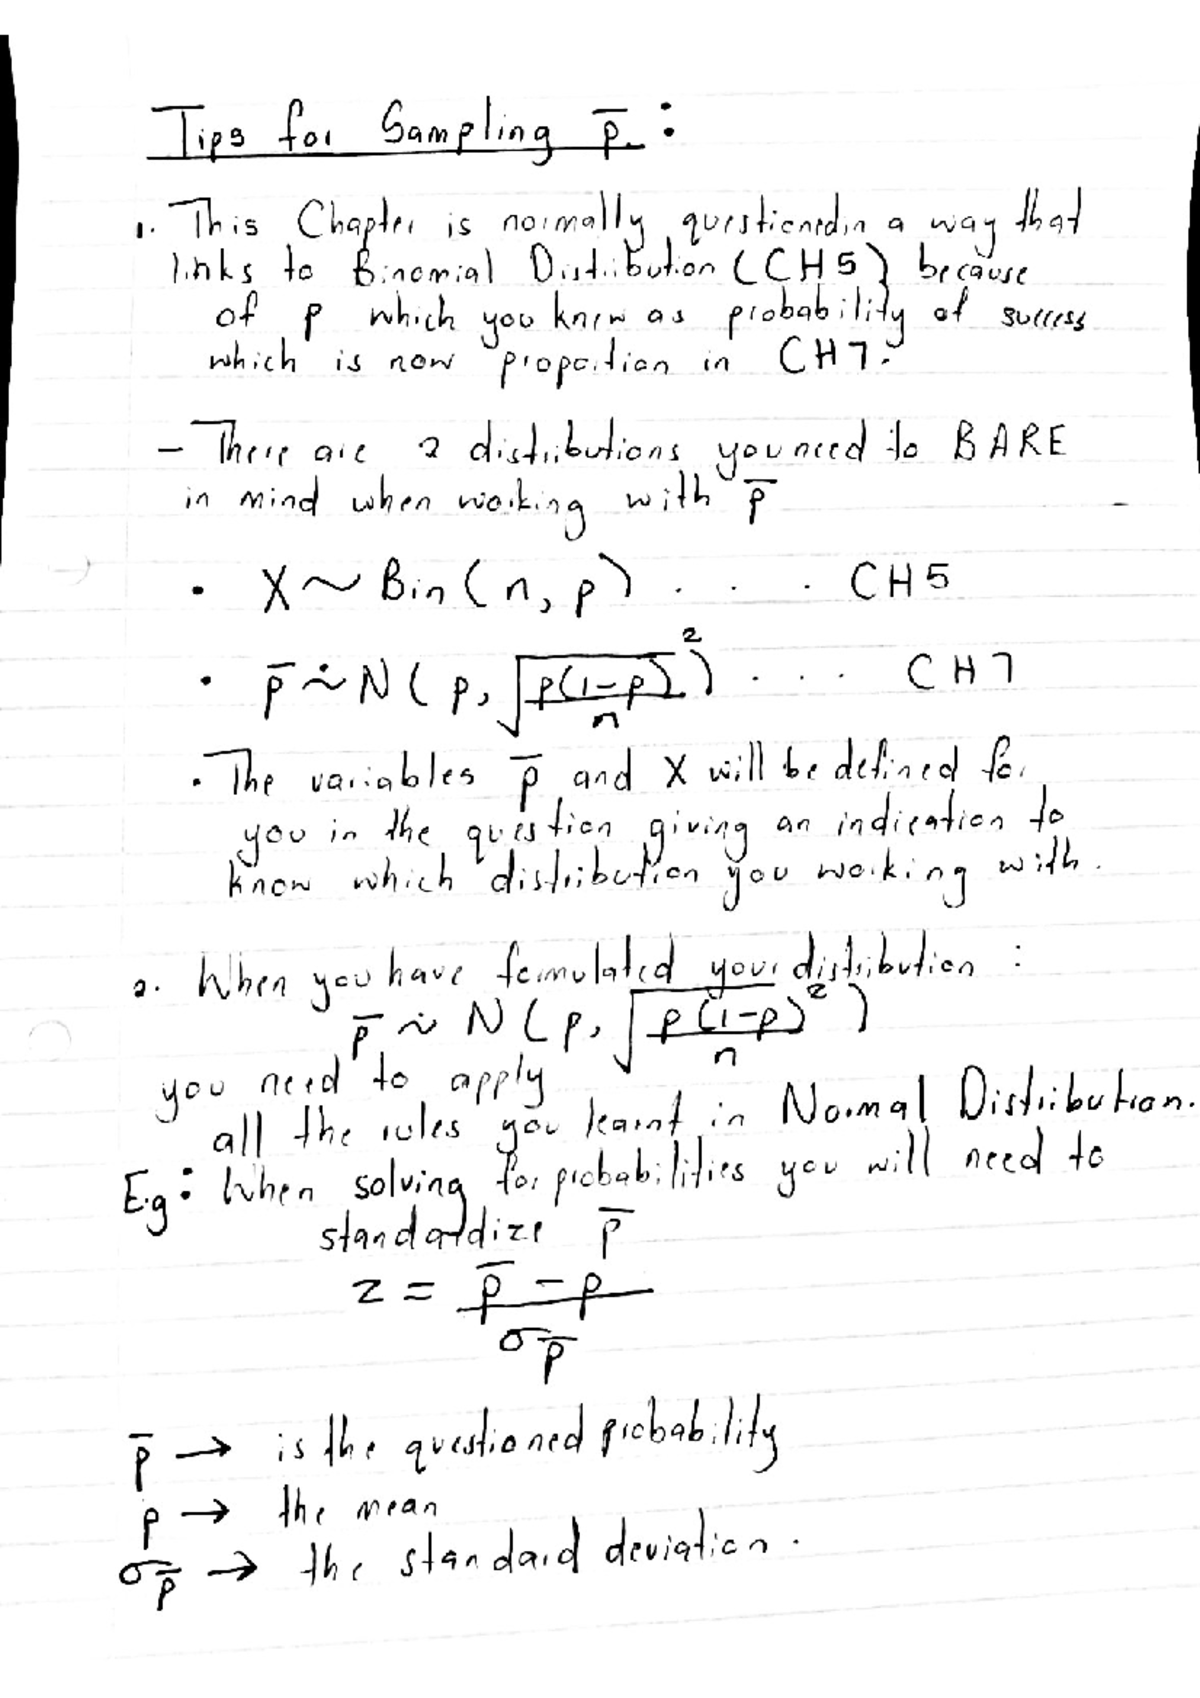 Tips for Sampling p̅ :
1. This Chapter is normally questioned in a way that
links to Binomial Distribution (CH5) because
of p which you knew as probability of success
which is now proportion in CH7.
– There are 2 distributions you need to BARE
in mind when working with p̅
• X ~ Bin (n, p) . . . CH5
• p̅ ∻ N ( p, √(p(1-p)/n)² ) . . . . CH7
• The variables p̅ and X will be defined for
you in the question giving an indication to
know which distribution you working with.
2. When you have formulated your distribution :
p̅ ∻ N ( p, √(p(1-p)/n)² )
you need to apply
all the rules you learnt in Normal Distribution.
E.g : When solving for probabilities you will need to
standardize p̅
z = (p̅ - p)/σp̅
p̅ → is the questioned probability
p → the mean
σp̅ → the standard deviation.